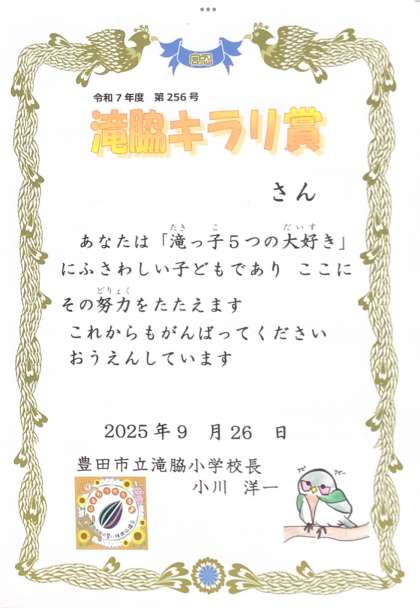 令和7年度 第256号
滝脇キラリ賞
さん
あなたは「滝っ子5つの大好き」
にふさわしい子どもであり ここに
その努力をたたえます
これからもがんばってください
おうえんしています
2025年9 月26 日
豊田市立滝脇小学校長
小川 洋一